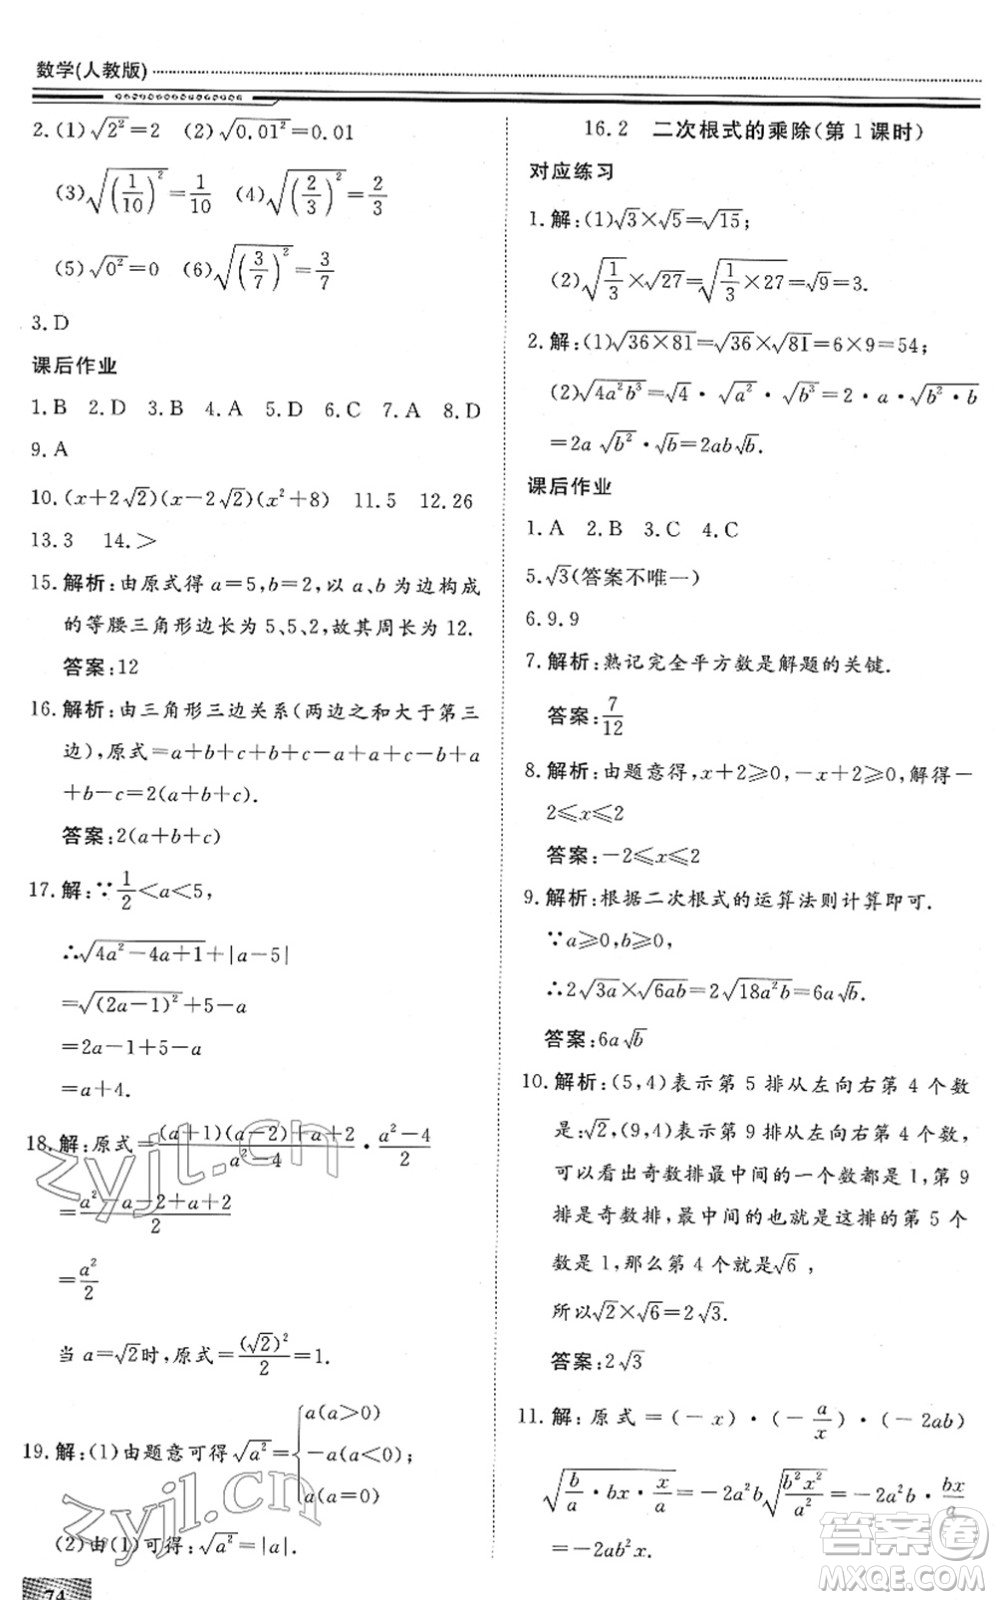 数学(人教版)
2.(1)√(2²)=2 (2)√(0.01²)=0.01
(3)√((1/10)²)=1/10 (4)√((2/3)²)=2/3
(5)√(0²)=0 (6)√((3/7)²)=3/7
3.D
课后作业
1.B 2.D 3.B 4.A 5.D 6.C 7.A 8.D
9.A
10.(x+2√2)(x-2√2)(x²+8) 11.5 12.26
13.3 14.>
15.解析:由原式得a=5,b=2,以a、b为边构成
的等腰三角形边长为5、5、2,故其周长为12.
答案:12
16.解析:由三角形三边关系(两边之和大于第三
边),原式=a+b+c+b+c-a+a+c-b+a
+b-c=2(a+b+c).
答案:2(a+b+c)
17.解:∵1/2<a<5,
∴√(4a²-4a+1)+|a-5|
=√((2a-1)²)+5-a
=2a-1+5-a
=a+4.
18.解:原式=((a+1)(a-2)+a+2)/(a²-4)·(a²-4)/2
=(a²-a-2+a+2)/2
=a²/2
当a=√2时,原式=(√2)²/2=1.
19.解:(1)由题意可得√(a²)={a(a>0) -a(a<0) a(a=0);
(2)由(1)可得:√(a²)=|a|.
74
16.2 二次根式的乘除(第1课时)
对应练习
1.解:(1)√3×√5=√15;
(2)√(1/3)×√27=√(1/3×27)=√9=3.
2.解:(1)√(36×81)=√36×√81=6×9=54;
(2)√(4a²b³)=√4·√(a²)·√(b³)=2·a·√(b²·b)
=2a√(b²)·√b=2ab√b.
课后作业
1.A 2.B 3.C 4.C
5.√3(答案不唯一)
6.9.9
7.解析:熟记完全平方数是解题的关键.
答案:7/12
8.解析:由题意得,x+2≥0,-x+2≥0,解得-
2≤x≤2
答案:-2≤x≤2
9.解析:根据二次根式的运算法则计算即可.
∵a≥0,b≥0,
∴2√(3a)×√(6ab)=2√(18a²b)=6a√b.
答案:6a√b
10.解析:(5,4)表示第5排从左向右第4个数
是:√2,(9,4)表示第9排从左向右第4个数
可以看出奇数排最中间的一个数都是1,第9
排是奇数排,最中间的也就是这排的第5个
数是1,那么第4个就是√6,
所以√2×√6=2√3.
答案:2√3
11.解:原式=(-x)·(-a/x)·(-2ab)
√(b/a·bx·x/a)=-2a²b√(b²x²/a²)=-2a²b·bx/a
=-2ab²x.
zyjl.cn
zyjl.cn
答案圈
MXQE.COM